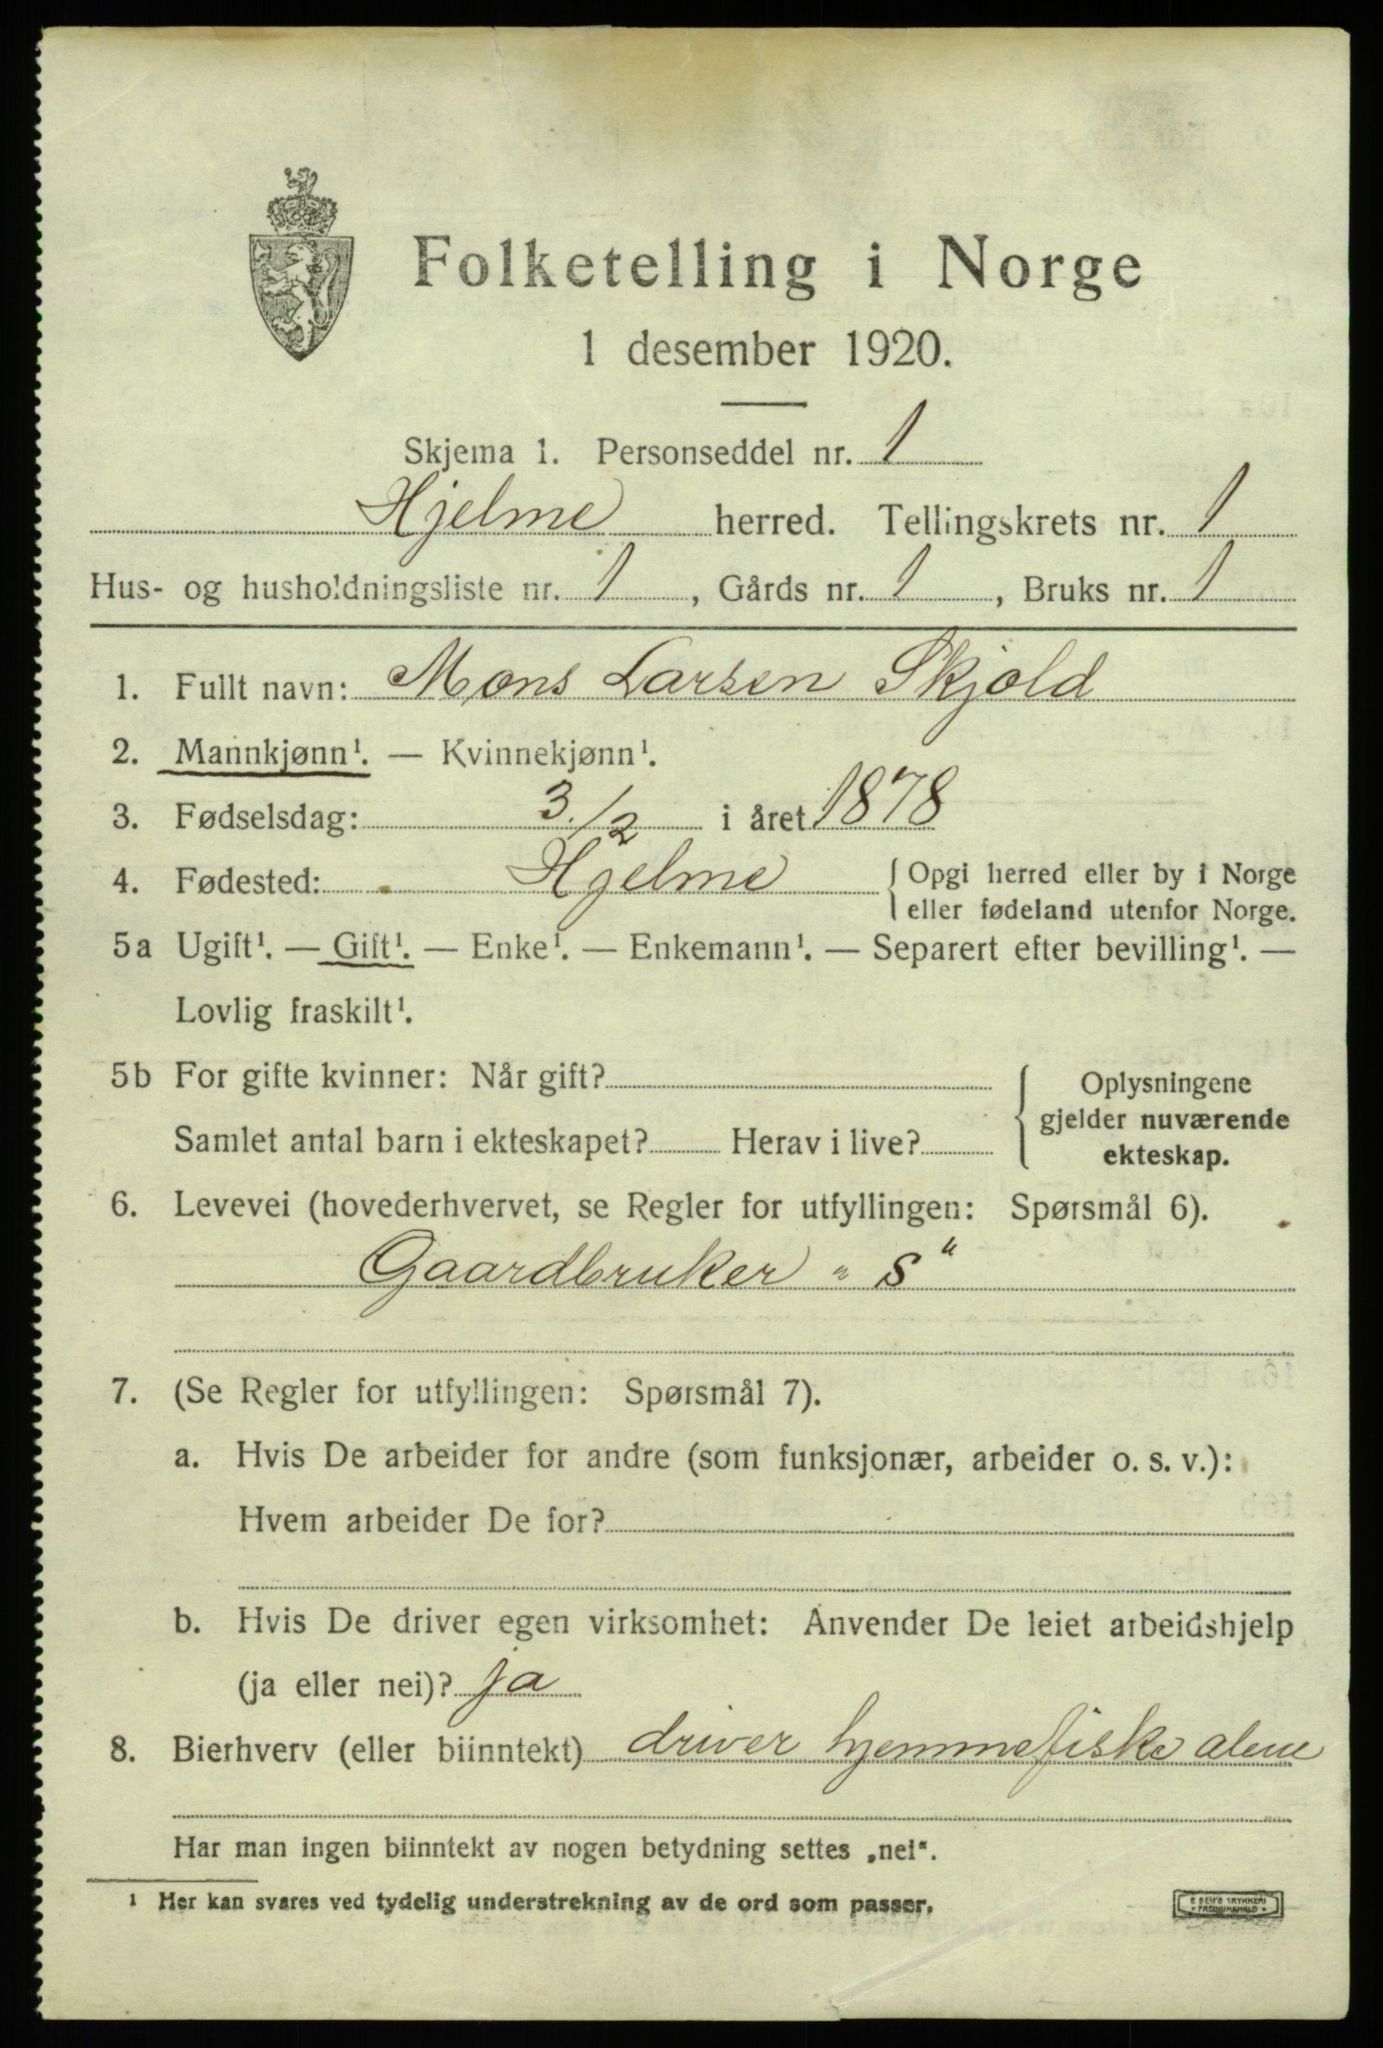 Folketelling i Norge
1 desember 1920.
Skjema 1. Personseddel nr. 1
Hjelme herred. Tellingskrets nr. 1
Hus- og husholdningsliste nr. 1, Gårds nr. 1, Bruks nr. 1
1. Fullt navn: Mons Larsen Skjold
2. Mannkjønn¹. — Kvinnekjønn¹.
3. Fødselsdag: 3/2 i året 1878
4. Fødested: Hjelme { Opgi herred eller by i Norge
eller fødeland utenfor Norge.
5a Ugift¹. — Gift¹. — Enke¹. — Enkemann¹. — Separert efter bevilling¹. —
Lovlig fraskilt¹.
5b For gifte kvinner: Når gift?
Samlet antal barn i ekteskapet? Herav i live?
Oplysningene
gjelder nuværende
ekteskap.
6. Levevei (hovederhvervet, se Regler for utfyllingen: Spørsmål 6).
Gaardbruker „ S "
7. (Se Regler for utfyllingen: Spørsmål 7).
a. Hvis De arbeider for andre (som funksjonær, arbeider o. s. v.):
Hvem arbeider De for?
b. Hvis De driver egen virksomhet: Anvender De leiet arbeidshjelp
(ja eller nei)? ja
8. Bierhverv (eller biinntekt) driver hjemmefiske alene
Har man ingen biinntekt av nogen betydning settes „nei“.
¹ Her kan svares ved tydelig understrekning av de ord som passer.